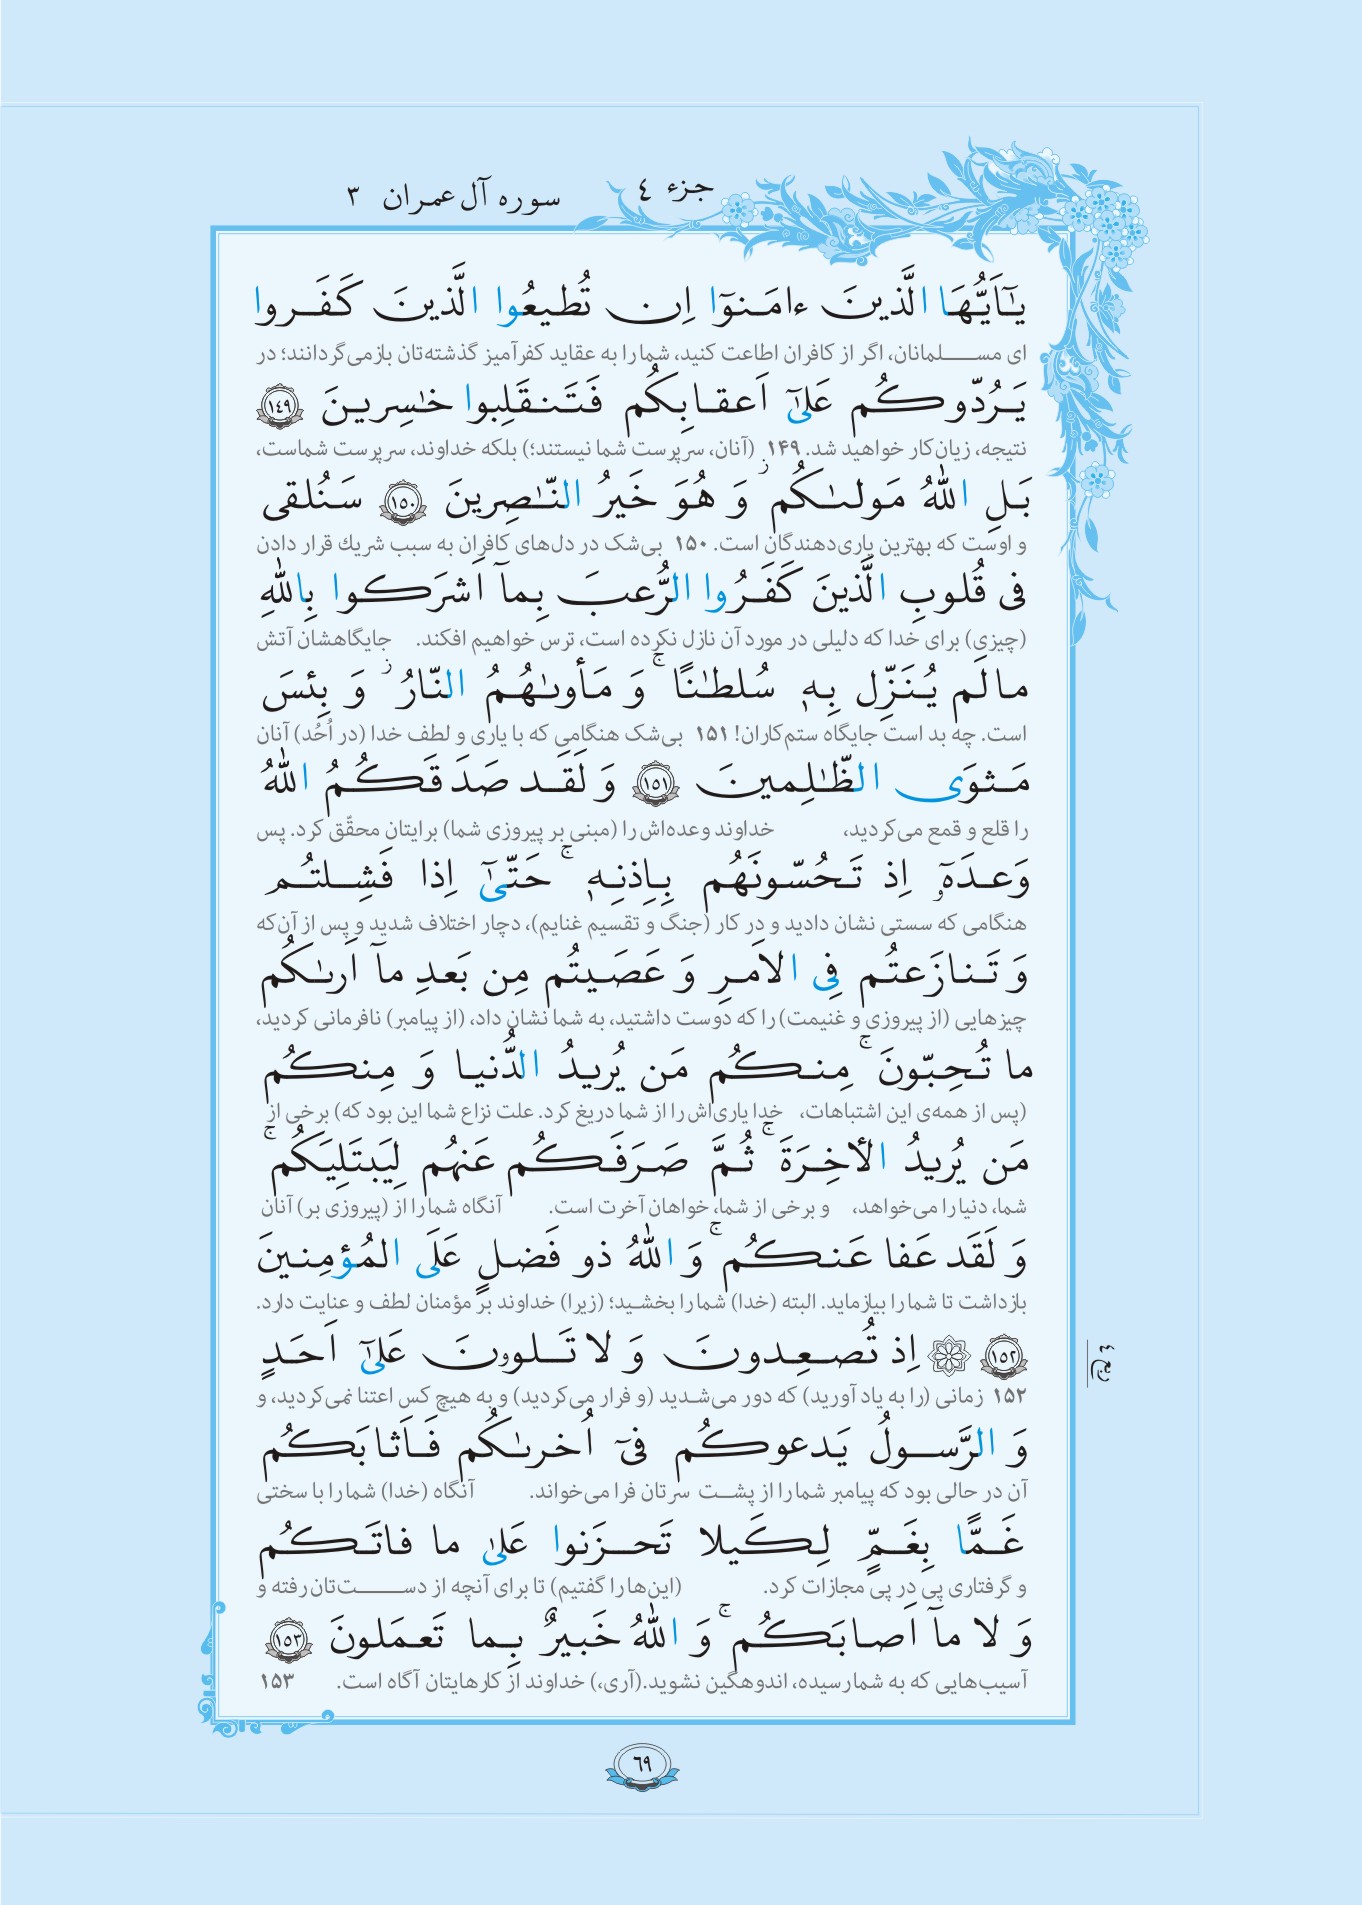 جزء ٤
سوره آل عمران ٣
يـٰٓاَيُّهَا الَّذينَ ءامَنوٓا اِن تُطيعُوا الَّذينَ كَفَروا
ای مسلمانان، اگر از کافران اطاعت کنید، شما را به عقاید کفرآمیز گذشته‌تان بازمی‌گردانند؛ در
يَرُدّوكُم عَلىٰٓ اَعقابِكُم فَتَنقَلِبوا خـٰسِرينَ ١٤٩
نتیجه، زیان‌کار خواهید شد. ۱۴۹ (آنان، سرپرست شما نیستند؛) بلکه خداوند، سرپرست شماست،
بَلِ اللّٰهُ مَولىٰكُم ز وَ هُوَ خَيرُ النّـٰصِرينَ ١٥٠ سَنُلقى
و اوست که بهترین یاری‌دهندگان است. ۱۵۰ بی‌شک در دل‌های کافران به سبب شریك قرار دادن
فى قُلوبِ الَّذينَ كَفَرُوا الرُّعبَ بِمآ اَشرَكوا بِاللّٰهِ
(چیزی) برای خدا که دلیلی در مورد آن نازل نکرده است، ترس خواهیم افکند. جایگاهشان آتش
مالَم يُنَزِّل بِهٖ سُلطـٰنًا ۚ وَ مَأوىٰهُمُ النّارُ ز وَ بِئسَ
است. چه بد است جایگاه ستم‌کاران! ۱۵۱ بی‌شک هنگامی که با یاری و لطف خدا (در اُحُد) آنان
مَثوَى الظّـٰلِمينَ ١٥١ وَ لَقَد صَدَقَكُمُ اللّٰهُ
را قلع و قمع می‌کردید، خداوند وعده‌اش را (مبنی بر پیروزی شما) برایتان محقّق کرد. پس
وَعدَهٗٓ اِذ تَحُسّونَهُم بِاِذنِهٖ ۚ حَتّىٰٓ اِذا فَشِلتُم
هنگامی که سستی نشان دادید و در کار (جنگ و تقسیم غنایم)، دچار اختلاف شدید و پس از آن‌که
وَ تَنازَعتُم فِى الاَمرِ وَ عَصَيتُم مِن بَعدِ مآ اَرىٰكُم
چیزهایی (از پیروزی و غنیمت) را که دوست داشتید، به شما نشان داد، (از پیامبر) نافرمانی کردید،
ما تُحِبّونَ ۚ مِنكُم مَن يُريدُ الدُّنيا وَ مِنكُم
(پس از همه‌ی این اشتباهات، خدا یاری‌اش را از شما دریغ کرد. علت نزاع شما این بود که) برخی از
مَن يُريدُ الأخِرَةَ ۚ ثُمَّ صَرَفَكُم عَنهُم لِيَبتَلِيَكُم ۚ
شما، دنیا را می‌خواهد، و برخی از شما، خواهان آخرت است. آنگاه شما را از (پیروزی بر) آنان
وَ لَقَد عَفا عَنكُم ۚ وَ اللّٰهُ ذو فَضلٍ عَلَى المُؤمِنينَ
بازداشت تا شما را بیازماید. البته (خدا) شما را بخشید؛ (زیرا) خداوند بر مؤمنان لطف و عنایت دارد.
١٥٢ اِذ تُصعِدونَ وَ لا تَلوونَ عَلىٰٓ اَحَدٍ
ربع ٤
۱۵۲ زمانی (را به یاد آورید) که دور می‌شدید (و فرار می‌کردید) و به هیچ کس اعتنا نمی‌کردید، و
وَ الرَّسولُ يَدعوكُم فىٓ اُخرىٰكُم فَاَثابَكُم
آن در حالی بود که پیامبر شما را از پشت سرتان فرا می‌خواند. آنگاه (خدا) شما را با سختی
غَمًّا بِغَمٍّ لِكَيلا تَحزَنوا عَلىٰ ما فاتَكُم
و گرفتاری پی در پی مجازات کرد. (این‌ها را گفتیم) تا برای آنچه از دست‌تان رفته و
وَ لا مآ اَصابَكُم ۚ وَ اللّٰهُ خَبيرٌ بِما تَعمَلونَ ١٥٣
آسیب‌هایی که به شما رسیده، اندوهگین نشوید.(آری،) خداوند از کارهایتان آگاه است. ۱۵۳
٦٩